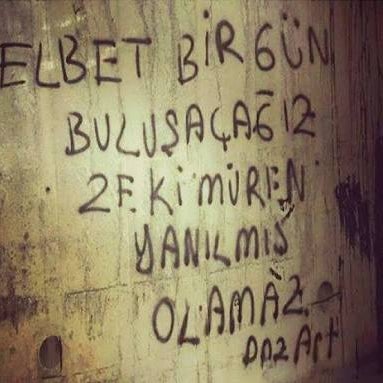 ELBET BİR GÜN
BULUŞAÇAĞIZ
ZEKİ MÜREN
YANILMIŞ
OLAMAZ
DnzArt